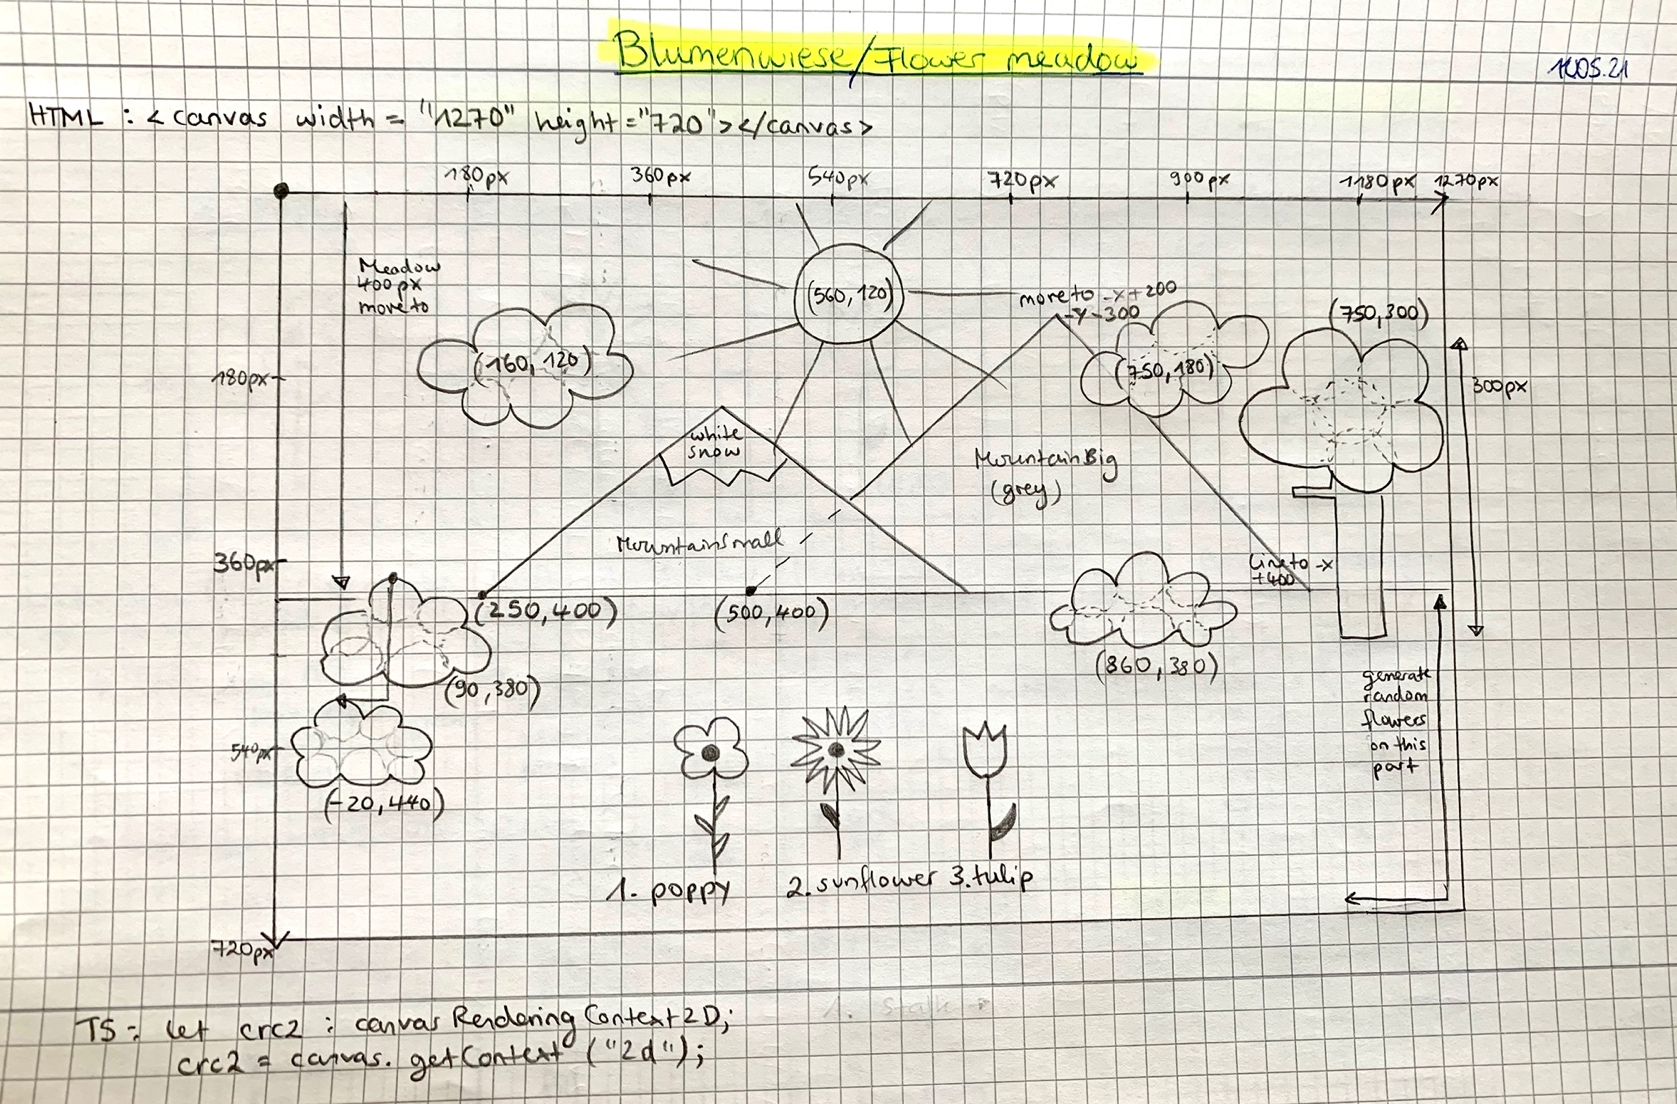 Blumenwiese/Flower meadow
HTML : <canvas width = "1270" height="720"></canvas>
180px 360px 540px 720px 900px 1180px 1270px
Meadow
400px
move to
(560,120)
move to -x+200
-y-300
(750,300)
(160,120)
(750,180)
180px
300px
white
snow
MountainBig
(grey)
MountainSmall
360px
Line to -x
+400
(250,400)
(500,400)
(860,380)
(90,380)
generate
random
flowers
on this
part
540px
(-20,440)
1. poppy 2. sunflower 3. tulip
720px
TS: let crc2 : canvasRenderingContext2D;
crc2 = canvas.getContext ("2d");